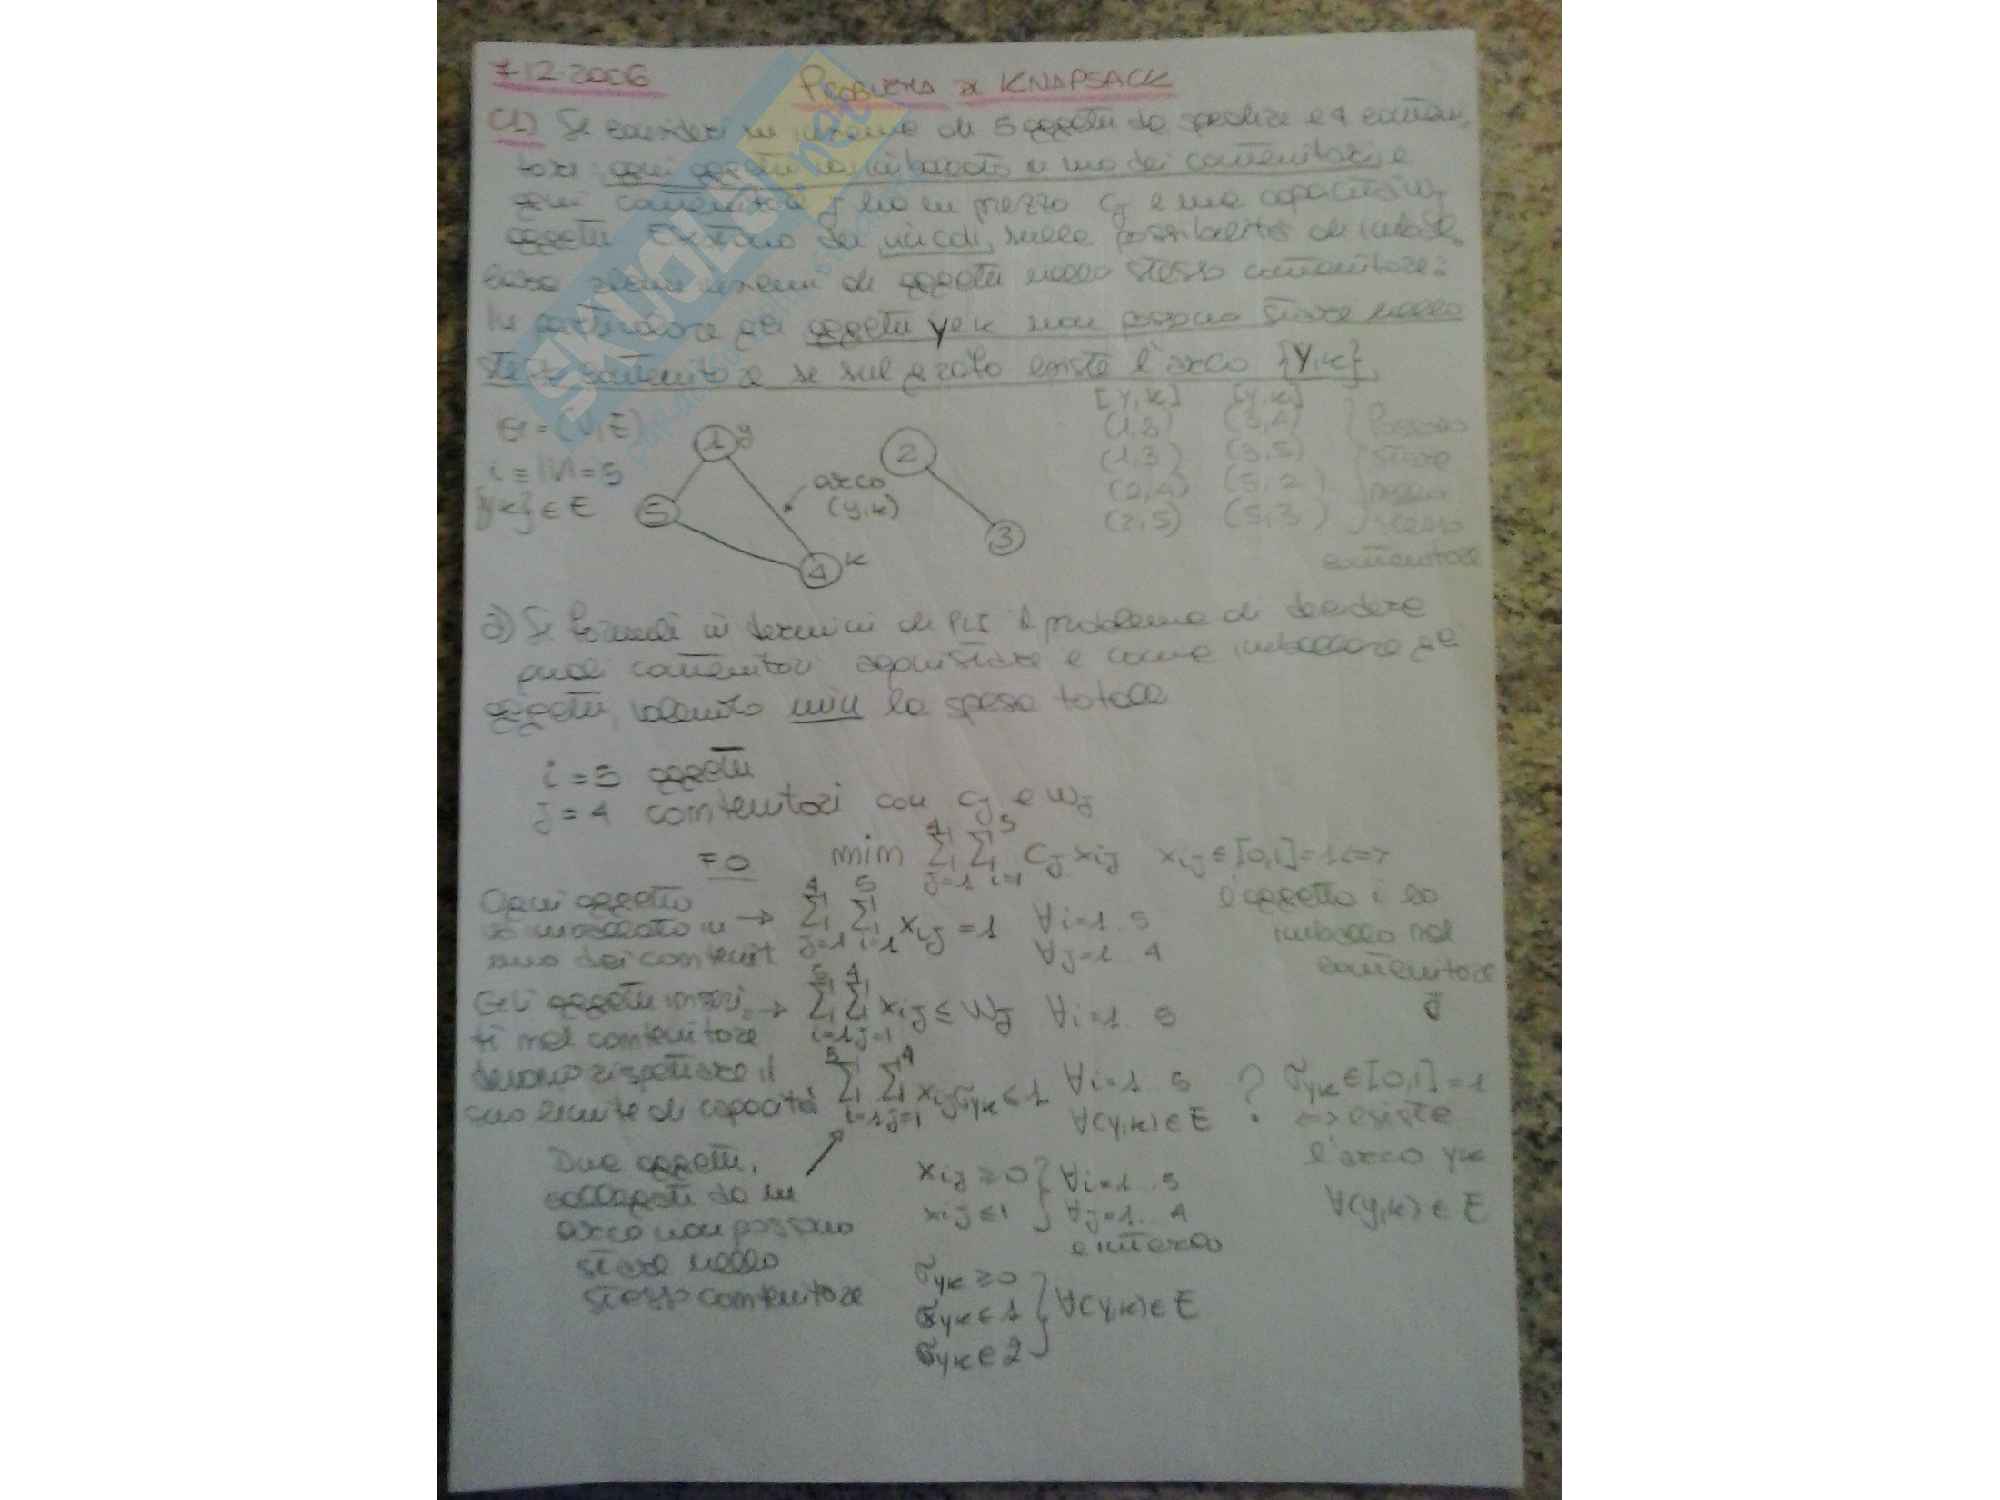 7-12-2006
PROBLEMA DI KNAPSACK
C1) Si consideri un insieme di 5 oggetti da spedire e 4 conteni
tori: ogni oggetto va imballato in uno dei contenitori e
ogni contenitore j ha un prezzo cj e una capacità wj
oggetti. Esistono dei vincoli, sulla possibilità di
alcuni insiemi di oggetti nello stesso contenitore:
In particolare gli oggetti y e k non possono stare nello
stesso contenitore se sul grafo esiste l'arco {y,k}.
G=(V,E)
i=|V|=5
{yk}∈E
1 y
5
arco
(y,k)
4 k
2
3
[y,k] [y,k]
(1,2) (3,4)
(1,3) (3,5)
(2,4) (5,2)
(2,5) (5,3)
Possono
stare
nello
stesso
contenitore
a) Si formuli in termini di PLI il problema di decidere
quali contenitori acquistare e come imballare gli
oggetti, volendo min la spesa totale
i=5 oggetti
j=4 contenitori con cj e wj
=0 min Σ j=1 4 Σ i=1 5 cj xij xij∈[0,1]=1<=>
l'oggetto i lo
imballo nel
contenitore
j
Ogni oggetto
va imballato in →
uno dei contenit
Σ j=1 4 Σ i=1 5 xij=1 ∀i=1..5
∀j=1..4
Gli oggetti inseri →
ti nel contenitore
devono rispettare il
suo limite di capacità
Σ i=1 5 Σ j=1 4 xij≤wj ∀i=1..5
Σ i=1 5 Σ j=1 4 xij σyk≤1 ∀i=1..5
∀(y,k)∈E ?
σyk∈[0,1]=1
<=> esiste
l'arco yk
∀(y,k)∈E
Due oggetti,
collegati da un
arco non possono
stare nello
stesso contenitore
xij≥0 } ∀i=1..5
xij≤1 } ∀j=1..4
e intero
σyk≥0
σyk≤1 } ∀(y,k)∈E
σyk∈Z
SKUOLA.net